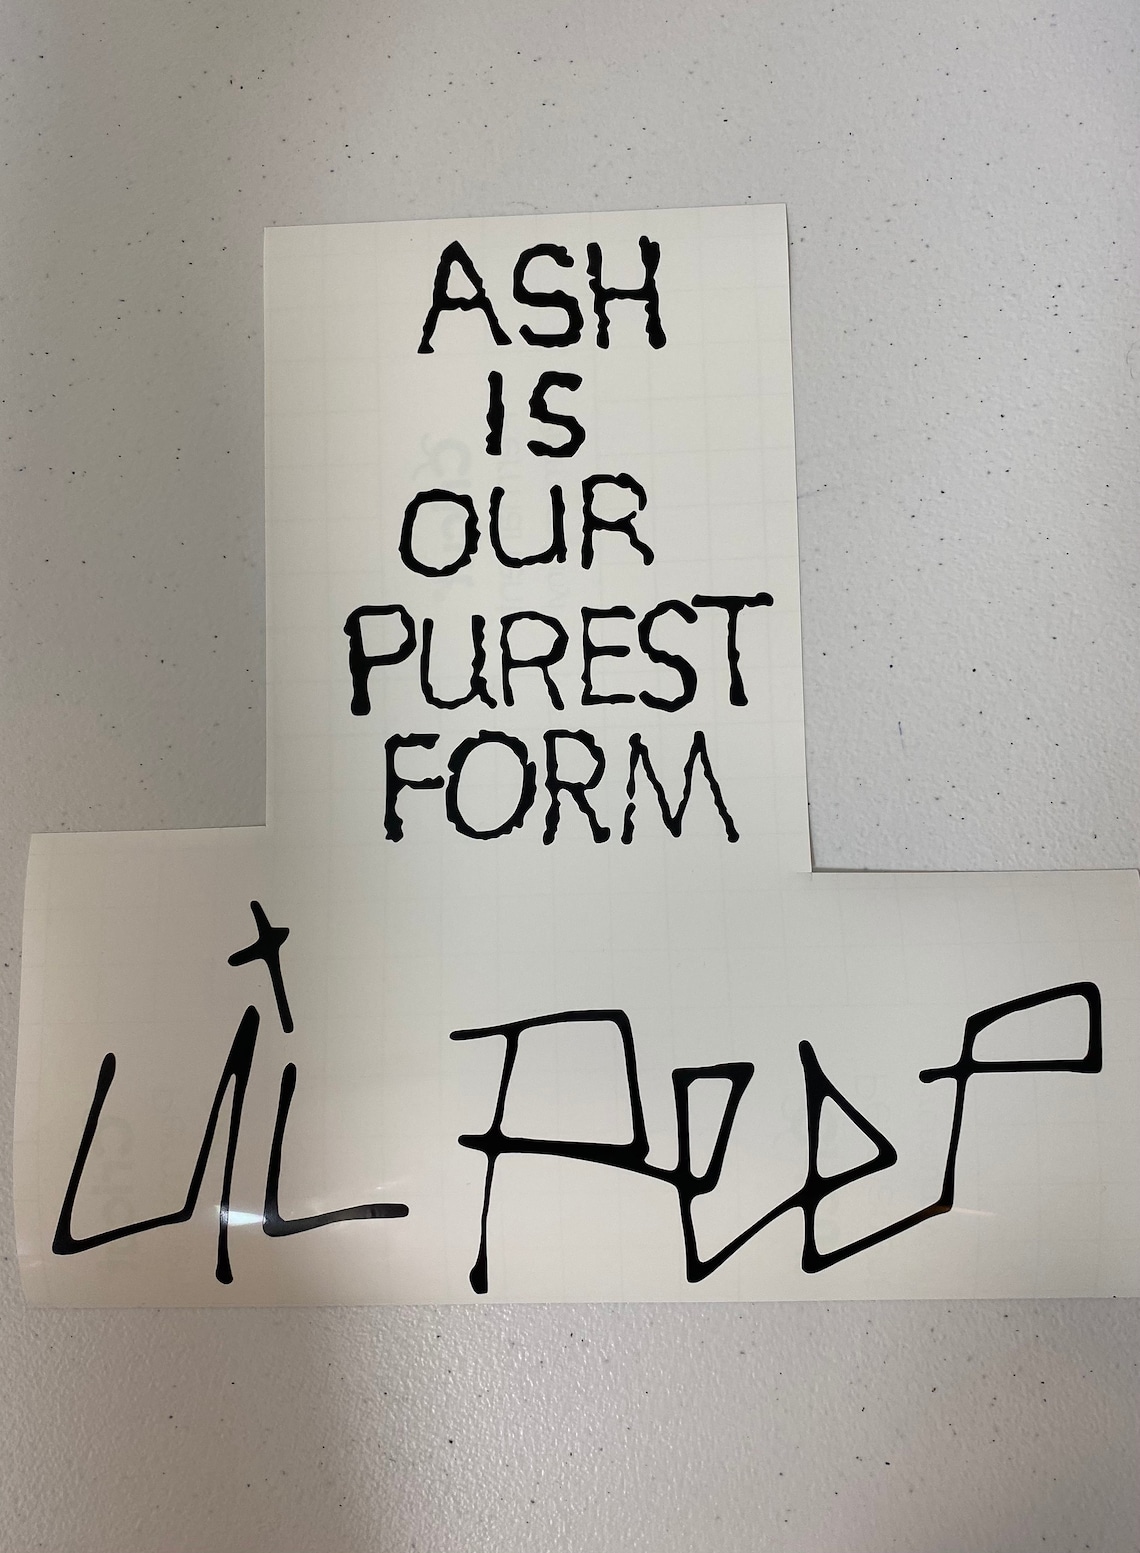 ASH
IS
OUR
PUREST
FORM
LiL PEEP